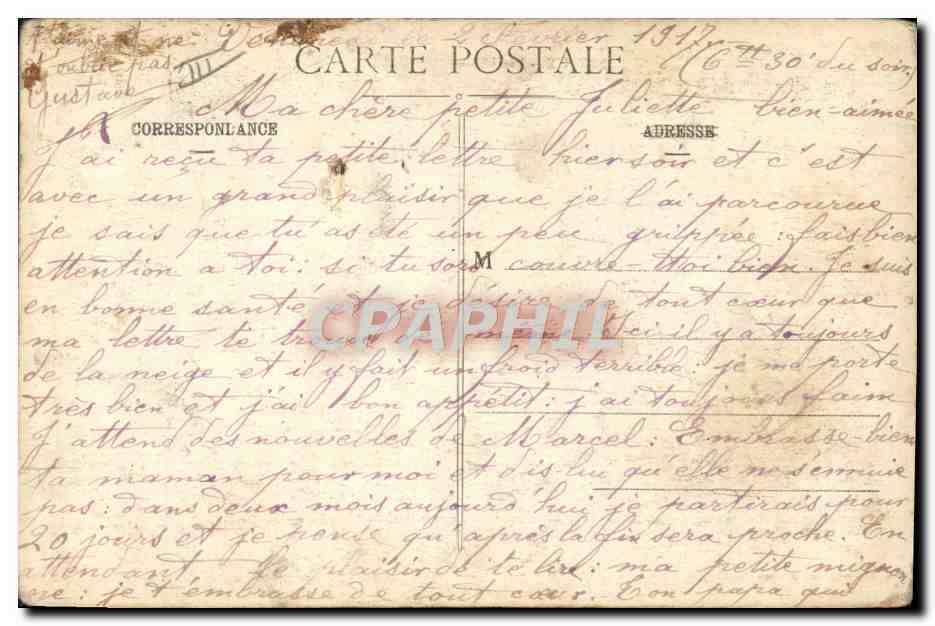 t'aime et ne Vendredi le 2 Février 1917
t'oublie pas (6 H 30' du soir)
Gustave
CARTE POSTALE
Ma chère petite Juliette bien-aimée
CORRESPONDANCE
ADRESSE
J'ai reçu ta petite lettre hier soir et c'est
avec un grand plaisir que je l'ai parcourue
je sais que tu as été un peu grippée : fais bien
attention a toi : si tu sors couvre-toi bien. Je suis
M
en bonne santé et je désire de tout cœur que
ma lettre te trouve Ici il y a toujours
CPAPHIL
de la neige et il y fait un froid terrible : je me porte
très bien et j'ai bon appétit : j'ai toujours faim
J'attend des nouvelles de Marcel : Embrasse-bien
ta maman pour moi et dis-lui qu'elle ne s'ennuie
pas : dans deux mois aujourd'hui je partirais pour
20 jours et je pense qu'après la fin sera proche. En
attendant le plaisir de te lire : ma petite mignon
ne : je t'embrasse de tout cœur. Ton papa qui